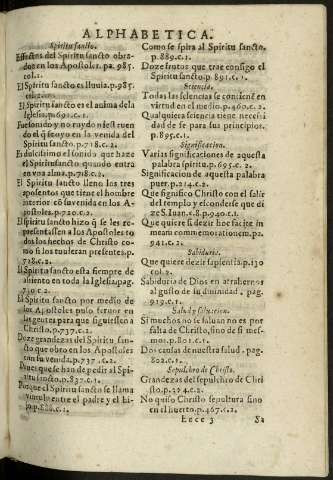 ALPHABETICA.
Spiritu sancto.
Effectos del Spiritu sancto obra-
dos en los Apostoles. pa. 985.
col. 2.
El Spiritu sancto es lluuia. p. 985.
El Spiritu sancto es el anima de la
Iglesia. p. 691. c. 1.
Fue sonido y no raydo ni estruen
do el q̃ se oyo en la venida del
Spiritu sancto. p. 718. c. 2.
Es dulcisimo el sonido que haze
el Spiritu sancto quando entra
en vna alma. p. 718. c. 2.
El Spiritu sancto lleno los tres
aposentos que tiene el hombre
interior cõ su venida en los A-
postoles. p. 720. c. 2.
El Spiritu sancto hizo q̃ se les re-
presentassen a los Apostoles to
dos los hechos de Christo co-
mo si los tuuieran presentes. p.
718. c. 2.
El Spiritu sancto esta siempre de
assiento en toda la Iglesia. pag.
710. c. 2.
El Spiritu sancto por medio de
los Apostoles puso feruor en
las gentes para que siguiessen a
Christo. p. 737. c. 2.
Doze grandezas del Spiritu san-
cto que obro en los Apostoles
con su venida. p. 737. c. 2.
Dones que se han de pedir al Spi
ritu sancto. p. 837. c. 1.
Porque el Spiritu sancto se llama
vinculo entre el padre y el hi-
jo. p. 886. c. 1.
Como se spira al Spiritu sancto.
p. 889. c. 1.
Doze frutos que trae consigo el
Spiritu sancto. p. 891. c. 1.
Sciencia.
Todas las sciencias se contienẽ en
virtud en el medio. p. 460. c. 2.
Qualquiera sciencia tiene necessi
dad de fe para sus principios.
p. 895. c. 1.
Significacion.
Varias significaciones de aquesta
palabra spiritu. p. 695. c. 2.
Significacion de aquesta palabra
puer. p. 214. c. 2.
Que significo Christo con el salir
del templo y esconderse que di
ze S. Iuan. c. 8. p. 940. c. 1.
Que quiere si dezir hoc facite in
meam commemorationem. pa.
941. c. 2.
Sabiduria.
Que quiere dezir sapientia. p. 130
col. 2.
Sabiduria de Dios en atraheros
al gusto de su diuinidad. pag.
919. c. 1.
Salud y saluacion.
Si muchos no se saluan no es por
falta de Christo, sino de si mes-
mos. p. 801. c. 1.
Dos causas de nuestra salud. pag.
802. c. 1.
Sepulchro de Christo.
Grandezas del sepulchro de Chri
sto. p. 374. c. 2.
No quiso Christo sepultura sino
en el huerto. p. 467. c. 2.
Eeee 3 Sa